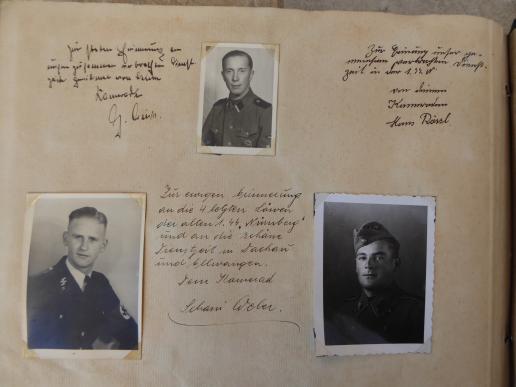 Zur steten Erinnerung an
unsere zusammen verbrachten Dienst-
zeit
Kamerad
Zur Erinnerung unser ge-
meinsam verbrachten Dienst-
zeit in der
von deinem
Kameraden
Hans Rösel.
Zur ewigen Erinnerung
an die 4 letzten Löwen
der alten 1. SS „Nürnberg“
und an die schöne
Dienstzeit in Dachau
und Ellwangen.
Dein Kamerad
Schani Weber.